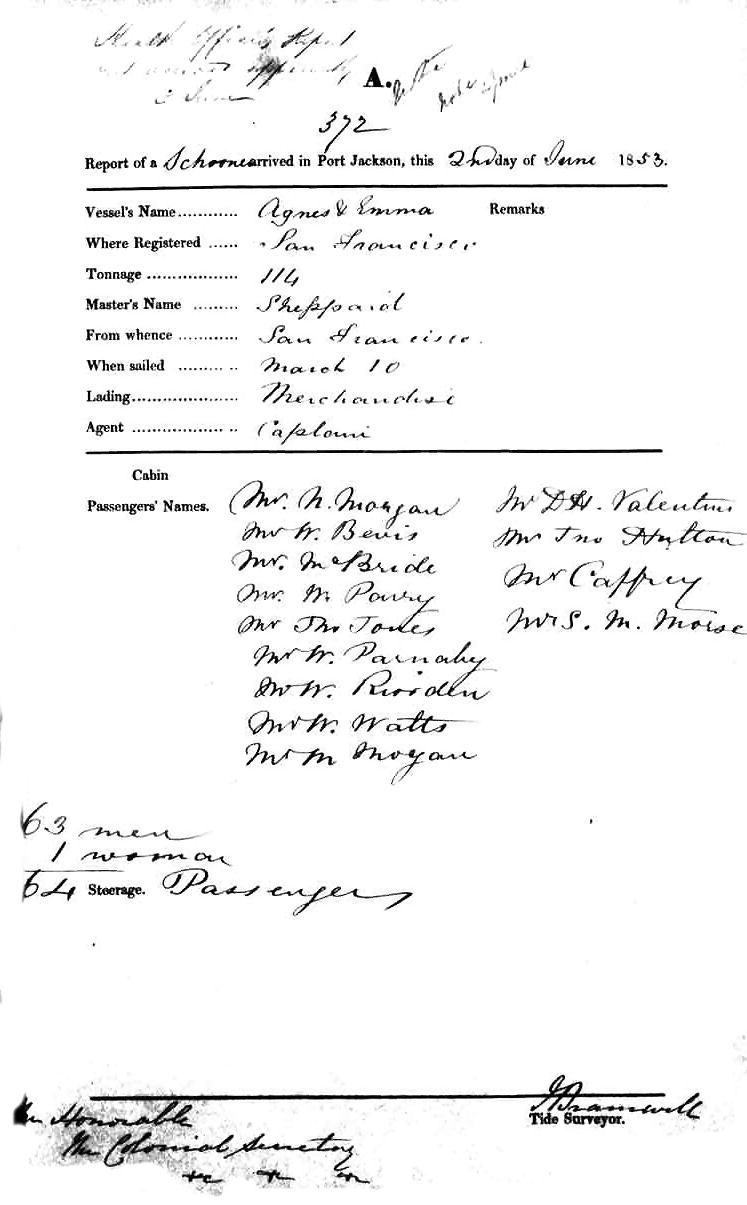 Health Officer's Report
3 June
A.
372
Report of a Schooner arrived in Port Jackson, this 2nd day of June 1853.
Vessel's Name............ Agnes & Emma Remarks
Where Registered ...... San Francisco
Tonnage .................. 114
Master's Name ......... Sheppard
From whence ............ San Francisco.
When sailed ......... .. March 10
Lading..................... Merchandise
Agent .................. ..
Cabin
Passengers' Names. Mr. N. Morgan Mr D H. Valentine
Mr W. Bevis Mr Jno Hutton
Mr. McBride Mr Caffrey
Mr. M Pavey Mr S. M. Morse
Mr Tho Jones
Mr W. Parnaby
Mr W. Riorden
Mr W. Watts
Mr M Mogan
63 men
1 woman
64 Steerage. Passengers
J Bramwell
Tide Surveyor.
The Honorable
The Colonial Secretary
&c &c &c